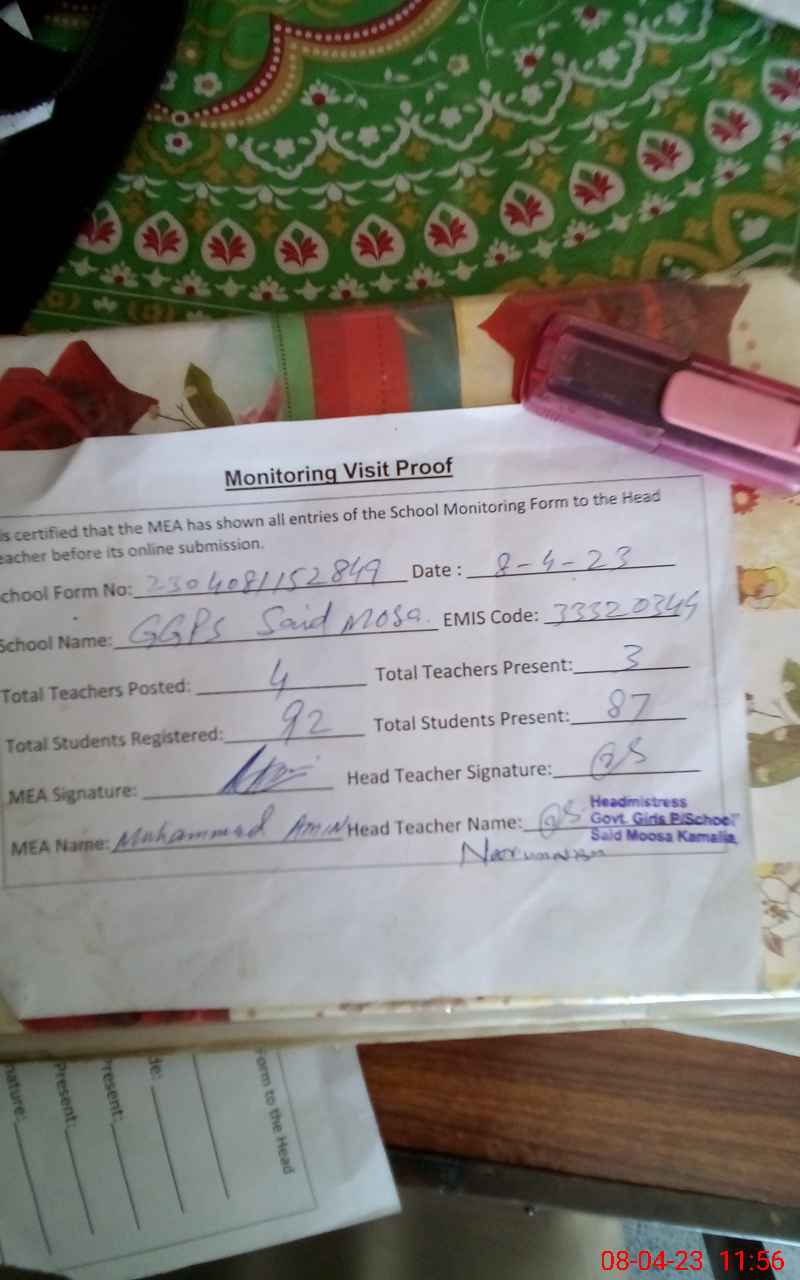 Monitoring Visit Proof
is certified that the MEA has shown all entries of the School Monitoring Form to the Head
eacher before its online submission.
chool Form No: 2304081152849 Date : 8-4-23
School Name: GGPS Said Mosa. EMIS Code: 33320344
Total Teachers Posted: 4 Total Teachers Present: 3
Total Students Registered: 92 Total Students Present: 87
MEA Signature: Head Teacher Signature:
MEA Name: Muhammad Amin Head Teacher Name:
Headmistress
Govt. Girls P/School
Said Moosa Kamalia,
Form to the Head
de:
resent:
Present:
nature:
08-04-23 11:56